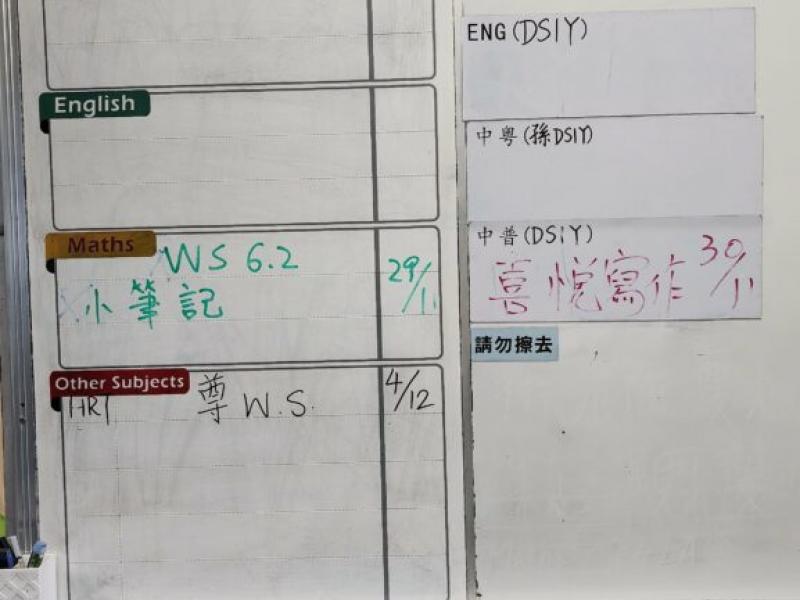 English
Maths
WS 6.2
小筆記
29/11
Other Subjects
HRT 尊 W.S. 4/12
ENG (DSIY)
中粵 (孫DSIY)
中普 (DSIY)
喜悅寫作 30/11
請勿擦去